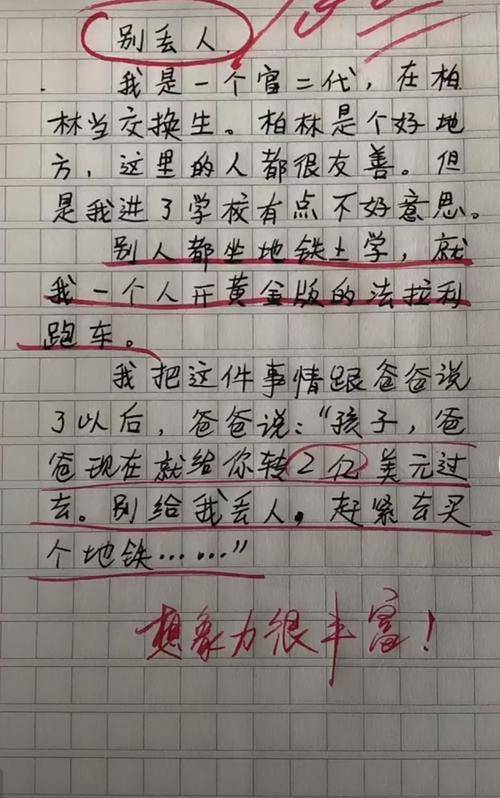 别丢人
我是一个富二代，在柏
林当交换生。柏林是个好地
方，这里的人都很友善。但
是我进了学校有点不好意思。
别人都坐地铁上学，就
我一个人开黄金版的法拉利
跑车。
我把这件事情跟爸爸说
了以后，爸爸说：“孩子，爸
爸现在就给你转2亿美元过
去。别给我丢人，赶紧去买
个地铁……”
想象力很丰富！